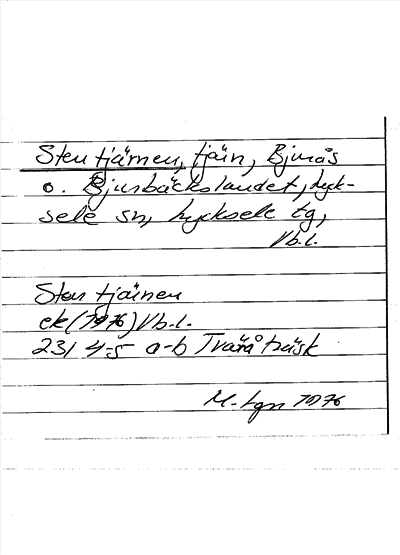 Stentjärnen, tjärn, Bjurås
o. Bjurbäckslandet, Lyck-
sele sn, Lycksele tg,
Vb.l.
Stentjärnen
ek (1976) Vb.l.
23I 4-5 a-b Tväråträsk
1976